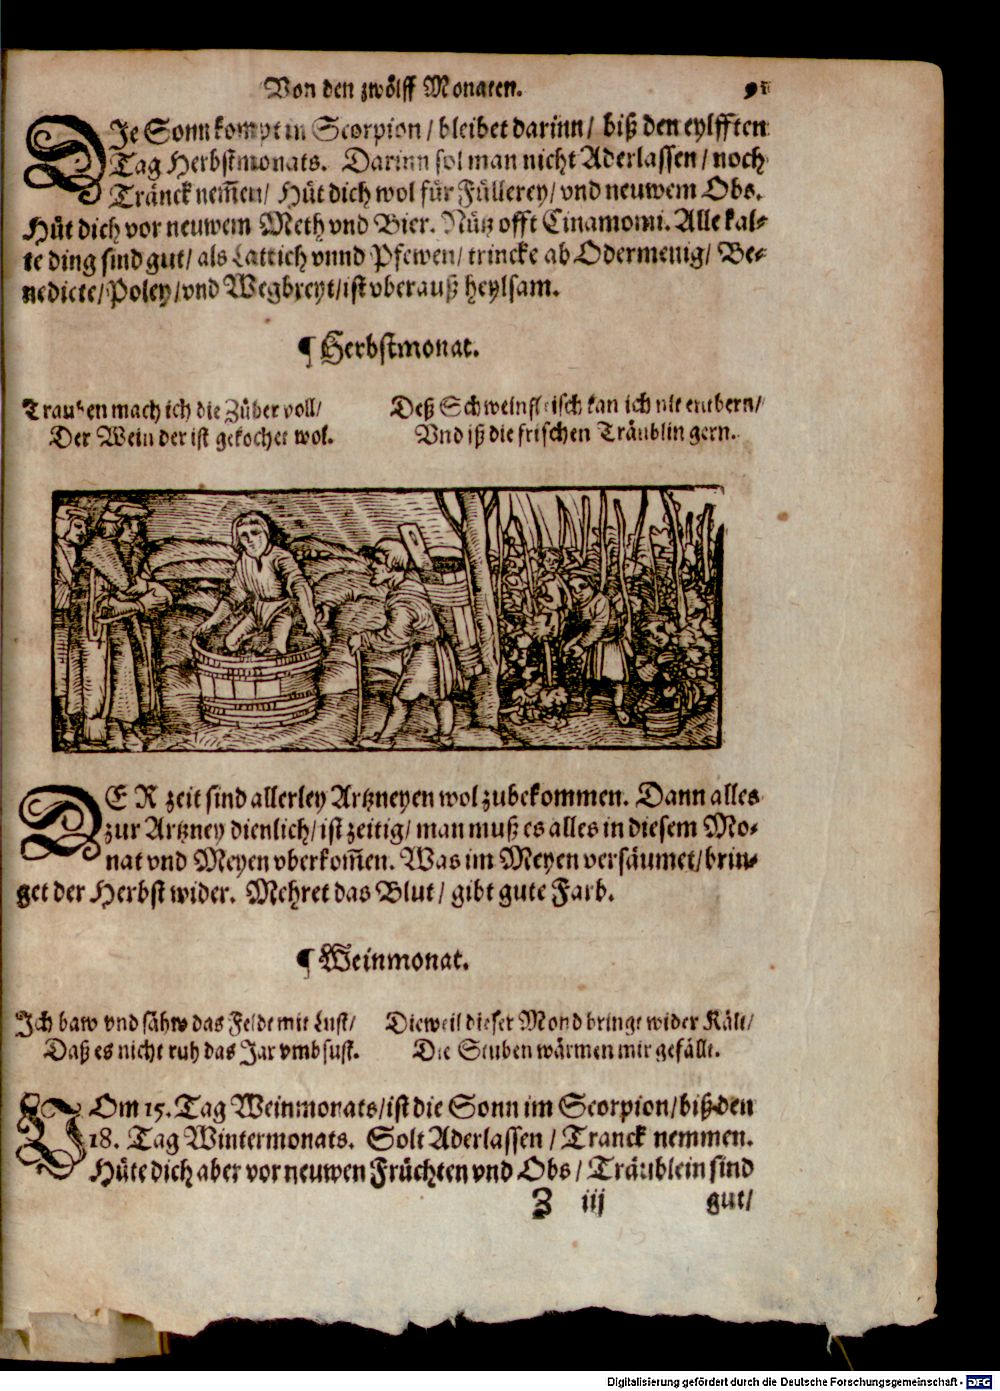 Von den zwölff Monaten. 91
DJe Sonn kompt in Scorpion / bleibet darinn / biß den eylfften
Tag Herbstmonats. Darinn sol man nicht Aderlassen / noch
Tränck nem̃en / Hüt dich wol für Füllerey / vnd neuwem Obs.
Hüt dich vor neuwem Meth vnd Bier. Nütz offt Cinamomi. Alle kal-
te ding sind gut / als Lattich vnnd Pfewen / trincke ab Odermenig / Be-
nedicte / Poley / vnd Wegbreyt / ist vberauß heylsam.
¶ Herbstmonat.
Trauben mach ich die Züber voll /
Der Wein der ist gekochet wol.
Deß Schweinfleisch kan ich nit entbern /
Vnd iß die frischen Träublin gern.
DER zeit sind allerley Artzneyen wol zubekommen. Dann alles
zur Artzney dienlich / ist zeitig / man muß es alles in diesem Mo-
nat vnd Meyen vberkom̃en. Was im Meyen versäumet / brin-
get der Herbst wider. Mehret das Blut / gibt gute Farb.
¶ Weinmonat.
Ich baw vnd sähw das Feldt mit Lust /
Daß es nicht ruh das Jar vmb sust.
Dieweil dieser Mond bringt wider Kält /
Die Stuben wärmen mir gefällt.
VOm 15. Tag Weinmonats / ist die Sonn im Scorpion / biß den
18. Tag Wintermonats. Solt Aderlassen / Tranck nemmen.
Hüte dich aber vor neuwen Früchten vnd Obs / Träublein sind
Z iij gut /
Digitalisierung gefördert durch die Deutsche Forschungsgemeinschaft - DFG